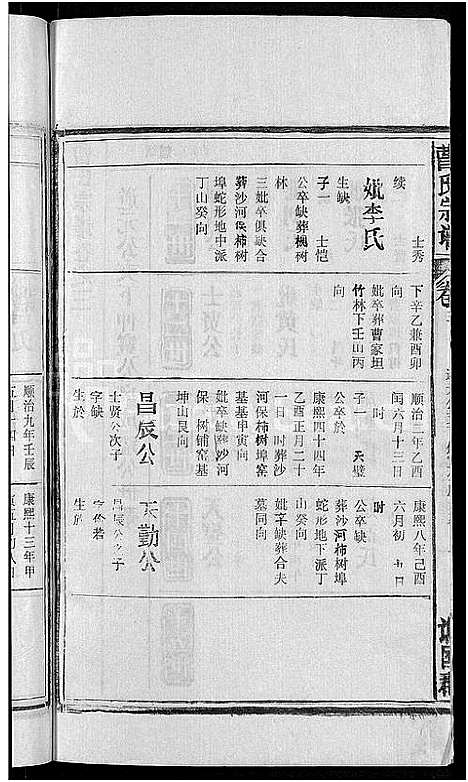 曹氏宗譜
卷
士秀
续
妣李氏
生缺
子一　士恺
公卒缺葬槐树
林
三妣卒俱缺合
葬沙河保柿树
埠蛇形地中派
丁山癸向
下辛乙兼酉卯
向
妣卒葬曹家坦
竹林下壬山丙
向
顺治二年乙酉
闰六月十三日
时
子一　天璧
公卒於
康熙四十四年
乙酉正月二十
一日　时葬沙
河保柿树埠窑
基基甲寅向
妣卒缺葬沙河
保　树铺窑基
坤山艮向
昌辰公
士贤公次子
字缺
生於
康熙八年己酉
六月初　日
时
公卒缺
葬沙河柿树埠
蛇形地下派丁
山癸向
妣　缺葬合夫
墓同向
天勤公
昌辰公　子
字　若
生於
顺治九年壬辰
康熙十三年甲